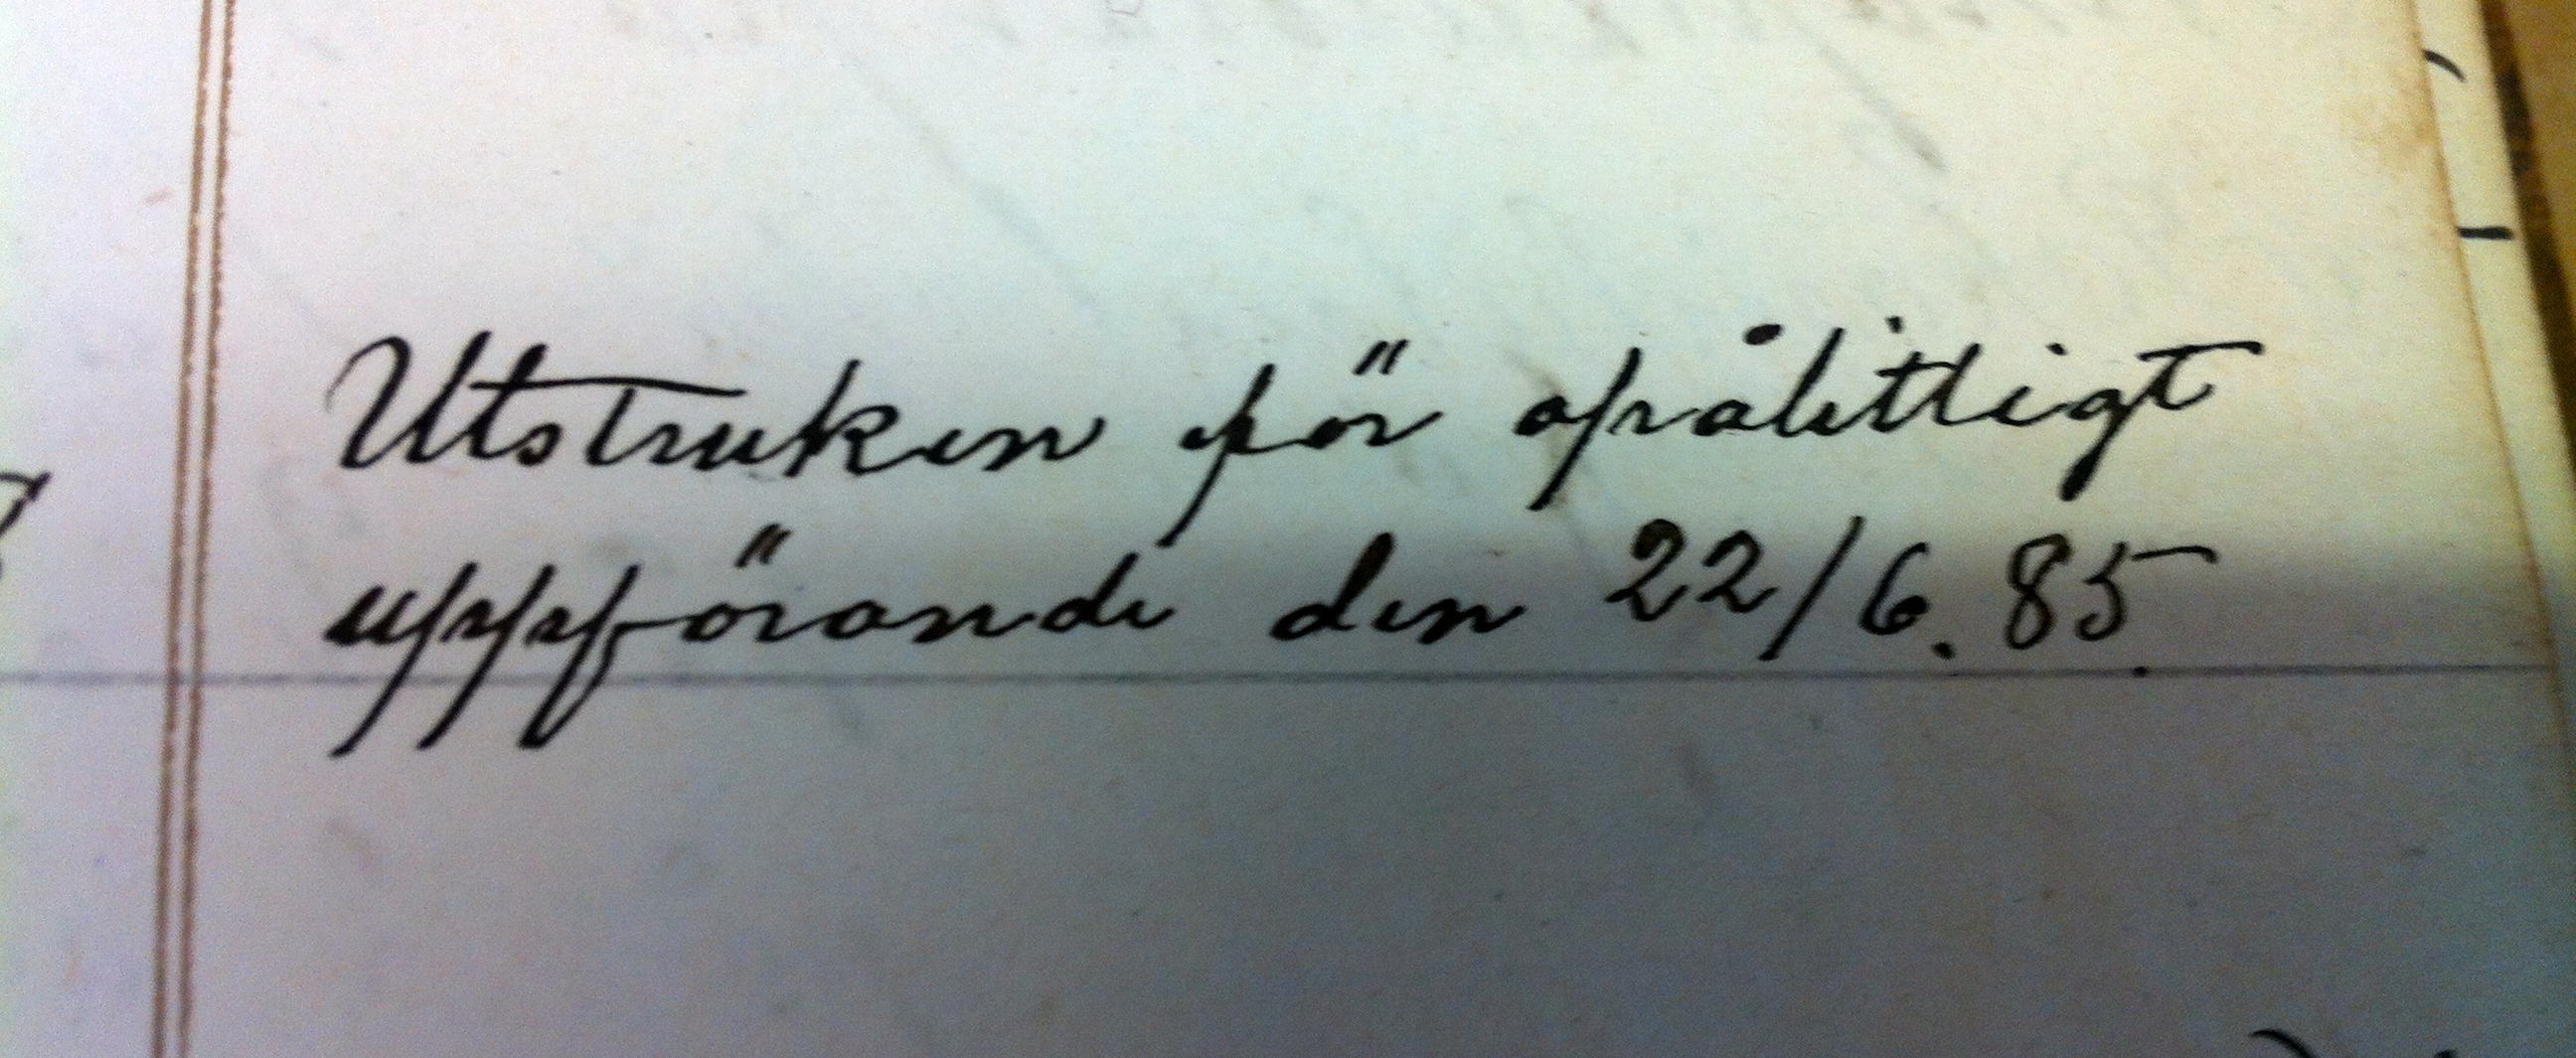 Utstruken för opålitligt
uppförande den 22/6. 85.